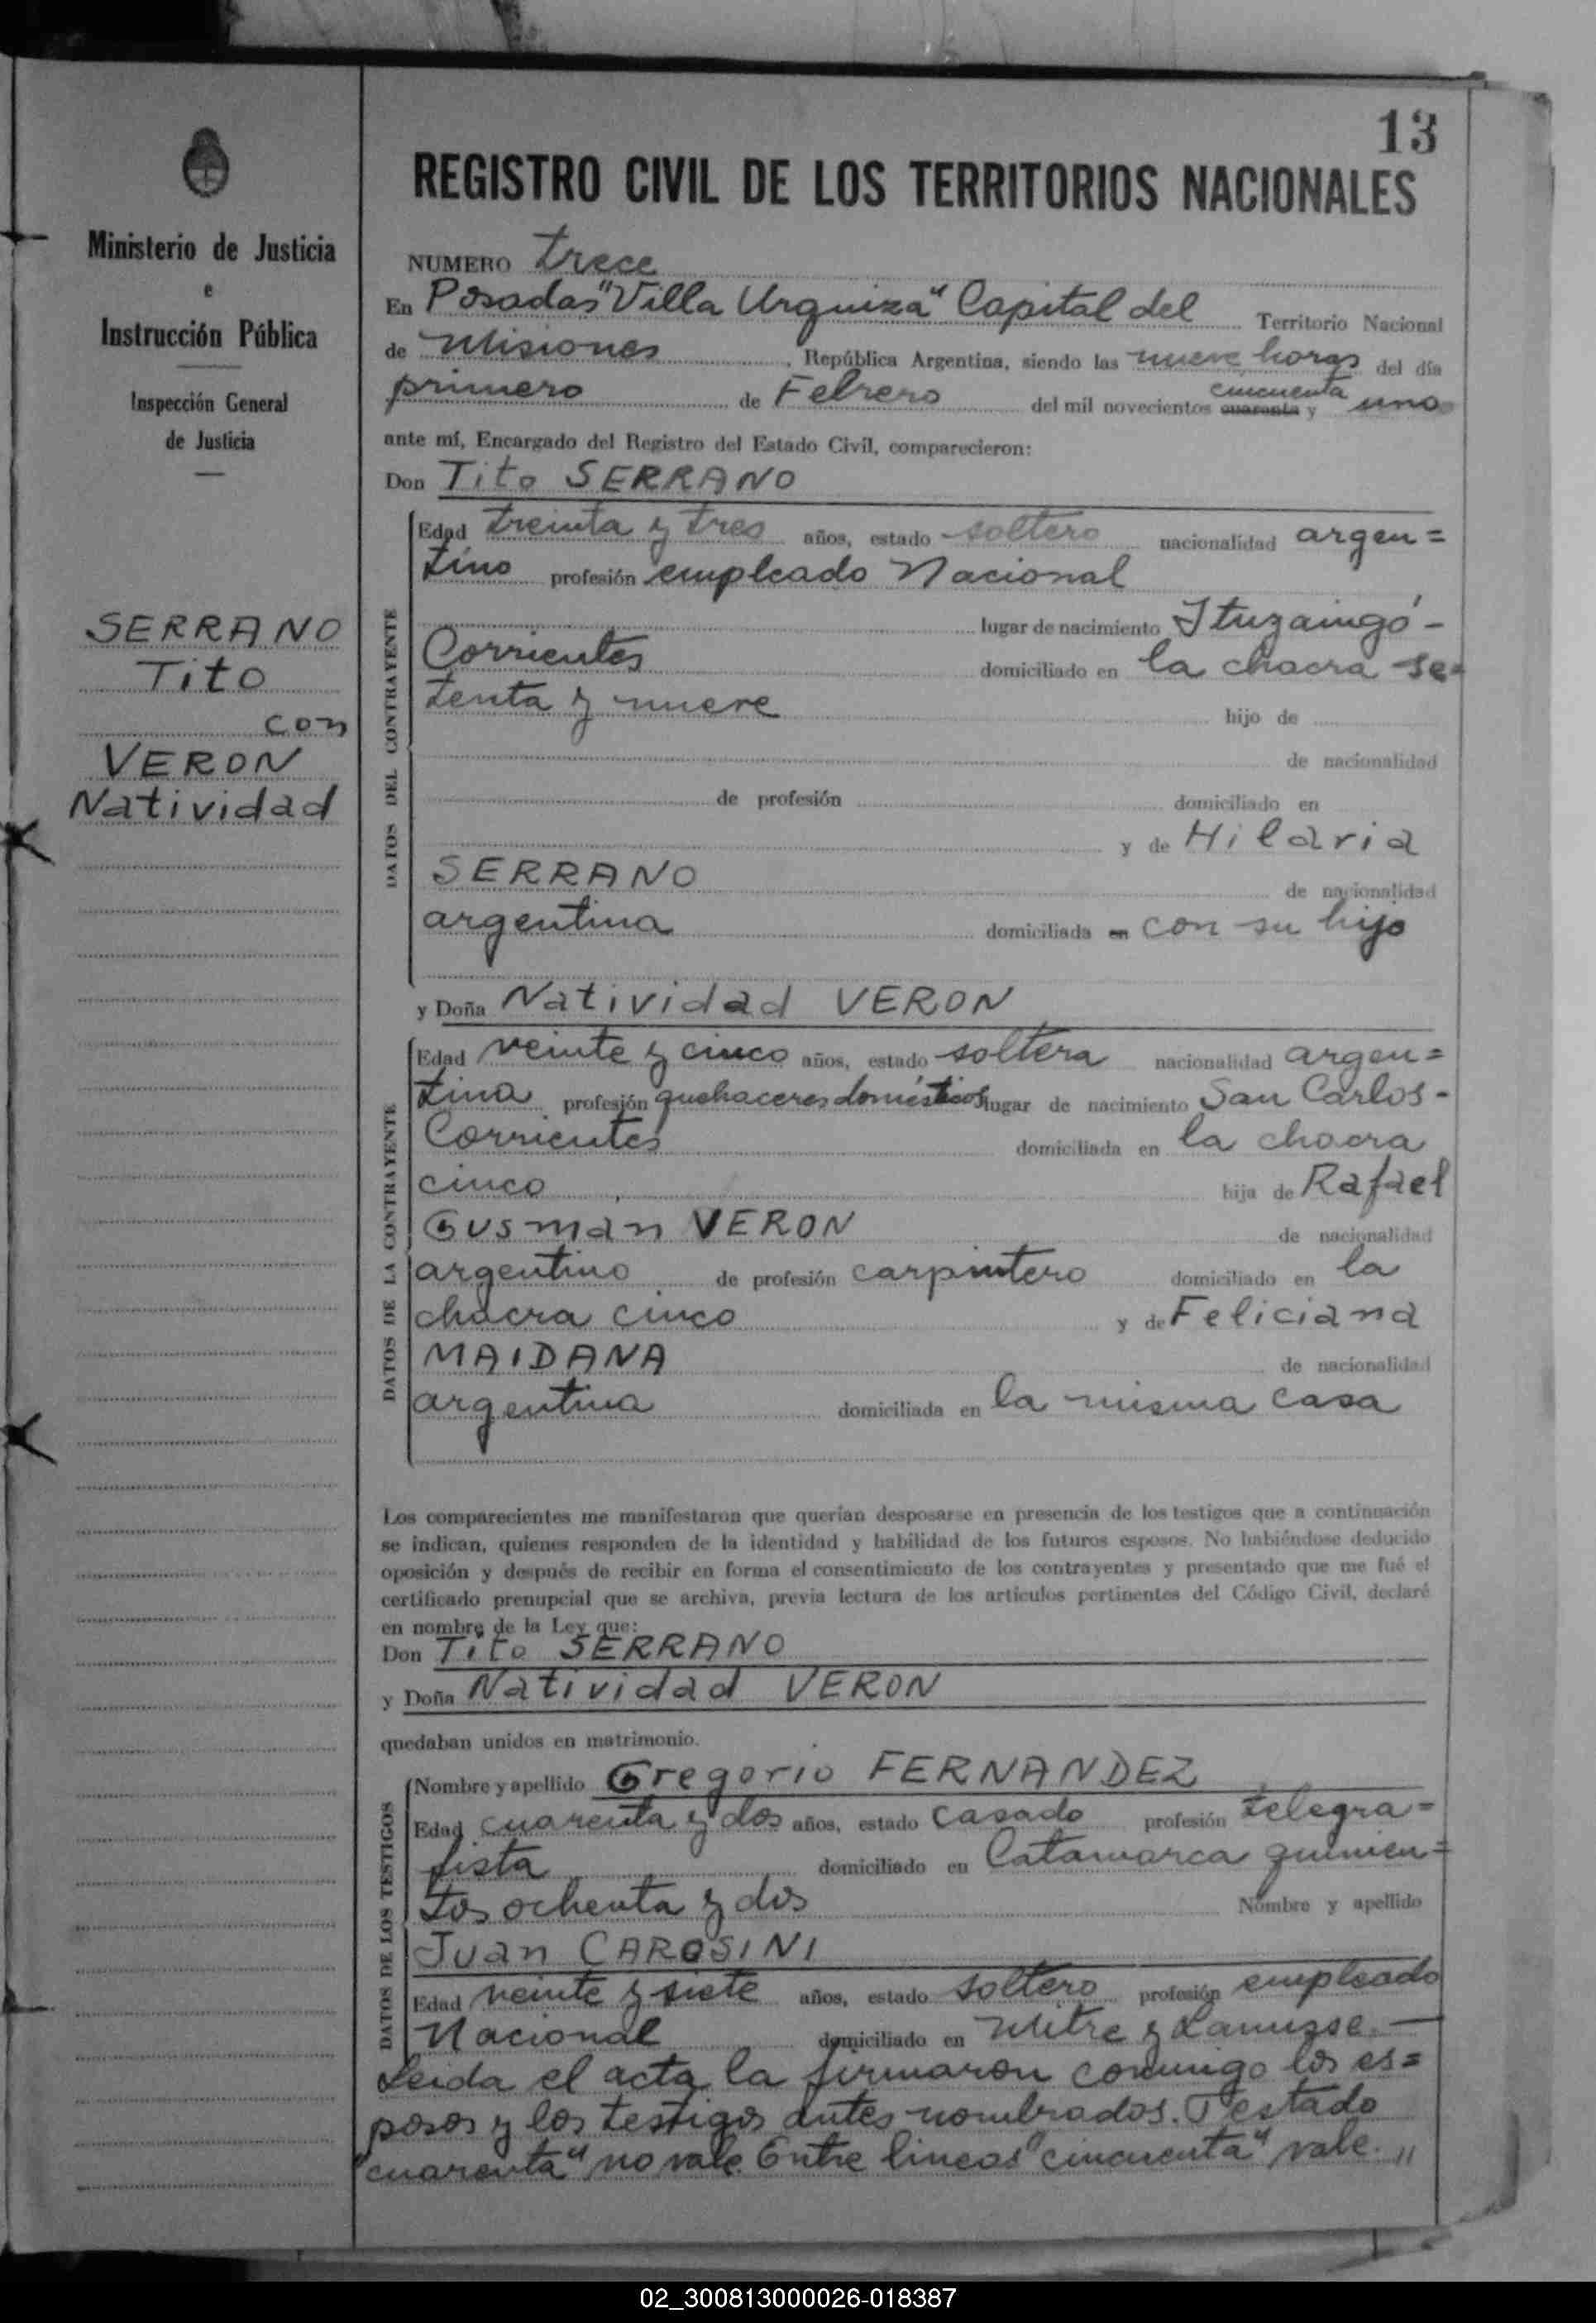 13
REGISTRO CIVIL DE LOS TERRITORIOS NACIONALES
Ministerio de Justicia
e
Instrucción Pública
Inspección General
de Justicia
SERRANO
Tito
con
VERON
Natividad
NUMERO trece
En Posadas "Villa Urquiza" Capital del Territorio Nacional
de Misiones, República Argentina, siendo las nueve horas del día
cincuenta
primero de Febrero del mil novecientos cuarenta y uno
ante mí, Encargado del Registro del Estado Civil, comparecieron:
Don Tito SERRANO
DATOS DEL CONTRAYENTE
Edad treinta y tres años, estado soltero nacionalidad argen=
tino profesión empleado Nacional
lugar de nacimiento Ituzaingó -
Corrientes domiciliado en la chacra se=
tenta y nueve hijo de
de nacionalidad
de profesión domiciliado en
y de Hilaria
SERRANO de nacionalidad
argentina domiciliada en con su hijo
y Doña Natividad VERON
DATOS DE LA CONTRAYENTE
Edad veinte y cinco años, estado soltera nacionalidad argen=
tina profesión quehaceres domésticos lugar de nacimiento San Carlos -
Corrientes domiciliada en la chacra
cinco hija de Rafael
Gusman VERON de nacionalidad
argentino de profesión carpintero domiciliado en la
chacra cinco y de Feliciana
MAIDANA de nacionalidad
argentina domiciliada en la misma casa
Los comparecientes me manifestaron que querían desposarse en presencia de los testigos que a continuación
se indican, quienes responden de la identidad y habilidad de los futuros esposos. No habiéndose deducido
oposición y después de recibir en forma el consentimiento de los contrayentes y presentado que me fué el
certificado prenupcial que se archiva, previa lectura de los artículos pertinentes del Código Civil, declaré
en nombre de la Ley que:
Don Tito SERRANO
y Doña Natividad VERON
quedaban unidos en matrimonio.
DATOS DE LOS TESTIGOS
Nombre y apellido Gregorio FERNANDEZ
Edad cuarenta y dos años, estado casado profesión telegra=
fista domiciliado en Catamarca quinien=
tos ochenta y dos Nombre y apellido
Juan CAROSINI
Edad veinte y siete años, estado soltero profesión empleado
Nacional domiciliado en Mitre y Lanusse. —
Leida el acta la firmaron conmigo los es=
posos y los testigos antes nombrados. Testado
"cuarenta" no vale. Entre lineas "cincuenta" vale. "
02_300813000026-018387